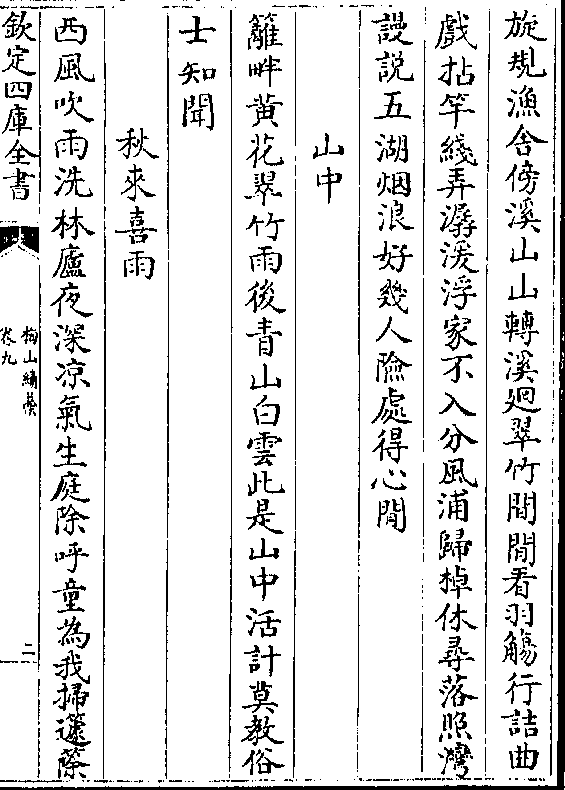 旋規漁舍傍溪山山轉溪廻翠竹間閒看羽觴行詰曲
戲拈竿綫弄潺湲浮家不入分風浦歸棹休尋落照灣
謾説五湖烟浪好幾人險處得心閒
山中
籬畔黄花翠竹雨後青山白雲此是山中活計莫教俗
士知聞
秋來喜雨
西風吹雨洗林廬夜深凉氣生庭除呼童為我掃籧篨
欽定四庫全書
梅山續藁
卷九
二